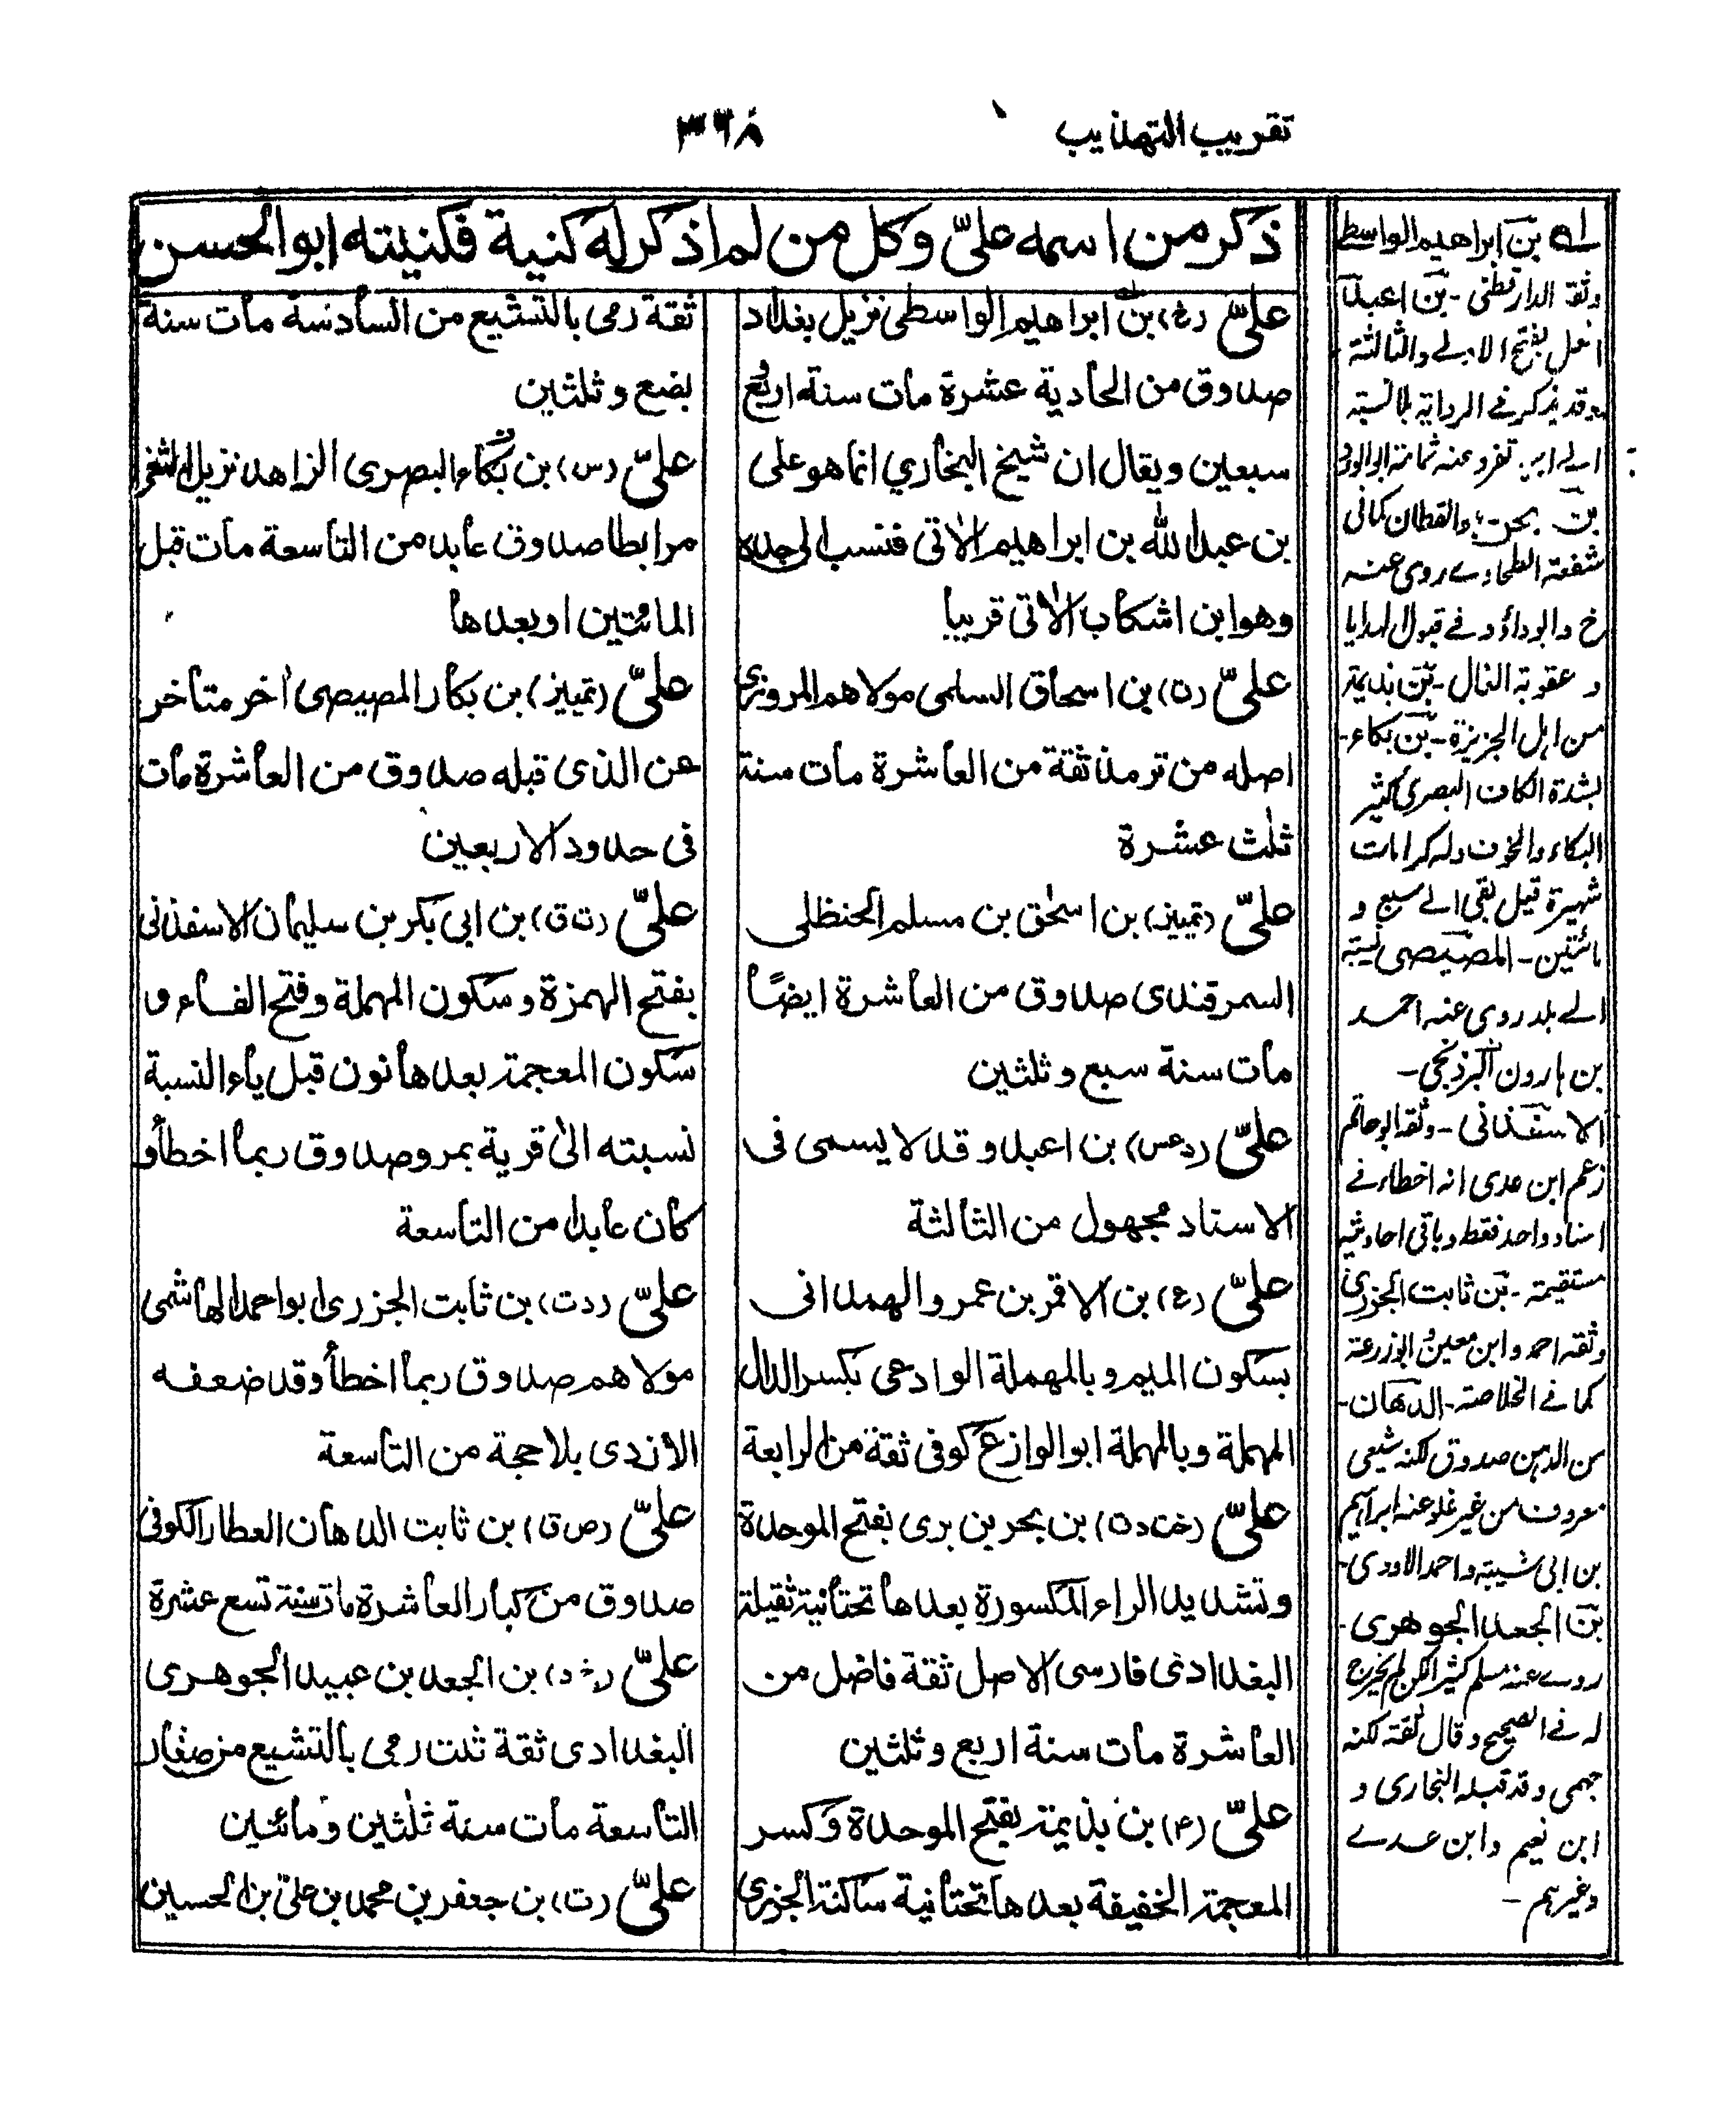 تقريب التهذيب
٣٦٨
ذكر من اسمه عليّ وكل من لم اذكر له كنية فكنيته ابو الحسن
عليّ (خ) بن ابراهيم الواسطى نزيل بغداد
صدوق من الحادية عشرة مات سنة اربع
سبعين ويقال ان شيخ البخاري انما هو على
بن عبدالله بن ابراهيم الاتى فنسب الى جده
وهو ابن اشكاب الاتى قريبا
عليّ (ت) بن اسحاق السلمى مولاهم المروزى
اصله من ترمذ ثقة من العاشرة مات سنة
ثلث عشرة
عليّ (تمييز) بن اسحٰق بن مسلم الحنظلى
السمرقندى صدوق من العاشرة ايضًا
مات سنة سبع وثلثين
عليّ (د عس) بن اعبد وقد لا يسمى فى
الاسناد مجهول من الثالثة
عليّ (ع) بن الاقمر بن عمرو الهمدانى
بسكون الميم وبالمهملة الوادعى بكسر الدال
المهملة وبالمهملة ابو الوازع كوفى ثقة من الرابعة
عليّ (خت د ت) بن بحر بن برى بفتح الموحدة
وتشديد الراء المكسورة بعدها تحتانية ثقيلة
البغدادى فارسى الاصل ثقة فاضل من
العاشرة مات سنة اربع وثلثين
عليّ (م) بن بذيمة بفتح الموحدة وكسر
المعجمة الخفيفة بعدها تحتانية ساكنة الجزرى
ثقة رمى بالتشيع من السادسة مات سنة
بضع وثلثين
عليّ (س) بن بكاء البصرى الزاهد نزيل الثغر
مرابطا صدوق عابد من التاسعة مات قبل
المائتين او بعدها
عليّ (تمييز) بن بكار المصيصى اٰخر متأخر
عن الذى قبله صدوق من العاشرة مات
فى حدود الاربعين
عليّ (ت ق) بن ابى بكر بن سليمان الاسفذنى
بفتح الهمزة وسكون المهملة وفتح الفاء و
سكون المعجمة بعدها نون قبل ياء النسبة
نسبته الىٰ قرية بمرو صدوق ربما اخطأ و
كان عابدا من التاسعة
عليّ (د ت) بن ثابت الجزرى ابو احمد الهاشمى
مولاهم صدوق ربما اخطأ وقد ضعفه
الأزدى بلا حجة من التاسعة
عليّ (ص ق) بن ثابت الدهان العطار الكوفى
صدوق من كبار العاشرة مات سنة تسع عشرة
عليّ (خ د) بن الجعد بن عبيد الجوهرى
البغدادى ثقة ثبت رمى بالتشيع من صغار
التاسعة مات سنة ثلثين ومائتين
عليّ (ت) بن جعفر بن محمد بن علىّ بن الحسين
بن ابراهيم الواسطى
وثقه الدارقطنى - بن اعبد
افعل بفتح الاولے والثالثة
وقد يذكر فے الرواية بالنسبة
الے ابيه تفرد عنه ثمامة ابو الورد
بن بحر - والقطان كمانى
شفعة الطحاوے روى عنه
خ و ابو داؤد فے قبول الهدايا
و عقوبة الغال - بن بذيمة
من اهل الجزيرة - بن بكاء -
بشدة الكاف البصرى كثير
البكاء والخوف وله كرامات
شهيرة قيل بقى الے سبع و
مائتين - المصيصى نسبته
الے بلد روى عنه احمد
بن هارون البرذنجى -
الاسفذنانى - وثقه ابو حاتم
زعم ابن عدى انه اخطاء فے
اسناد واحد فقط وباقى احاديثه
مستقيمة - بن ثابت الجزرى
وثقه احمد وابن معين وابو زرعة
كما فے الخلاصة - الدهان -
من الدهن صدوق لكنه شيعى
معروف من غير غلو عنه ابراهيم
بن ابى شيبة واحمد الاودى -
بن الجعد الجوهرى -
روے عنه مسلم كثيرا لكن لم يخرج
له فے الصحيح وقال ثقة لكنه
جهمى وقد قبله البخارى و
ابن نعيم وابن عدے
وغيرهم -